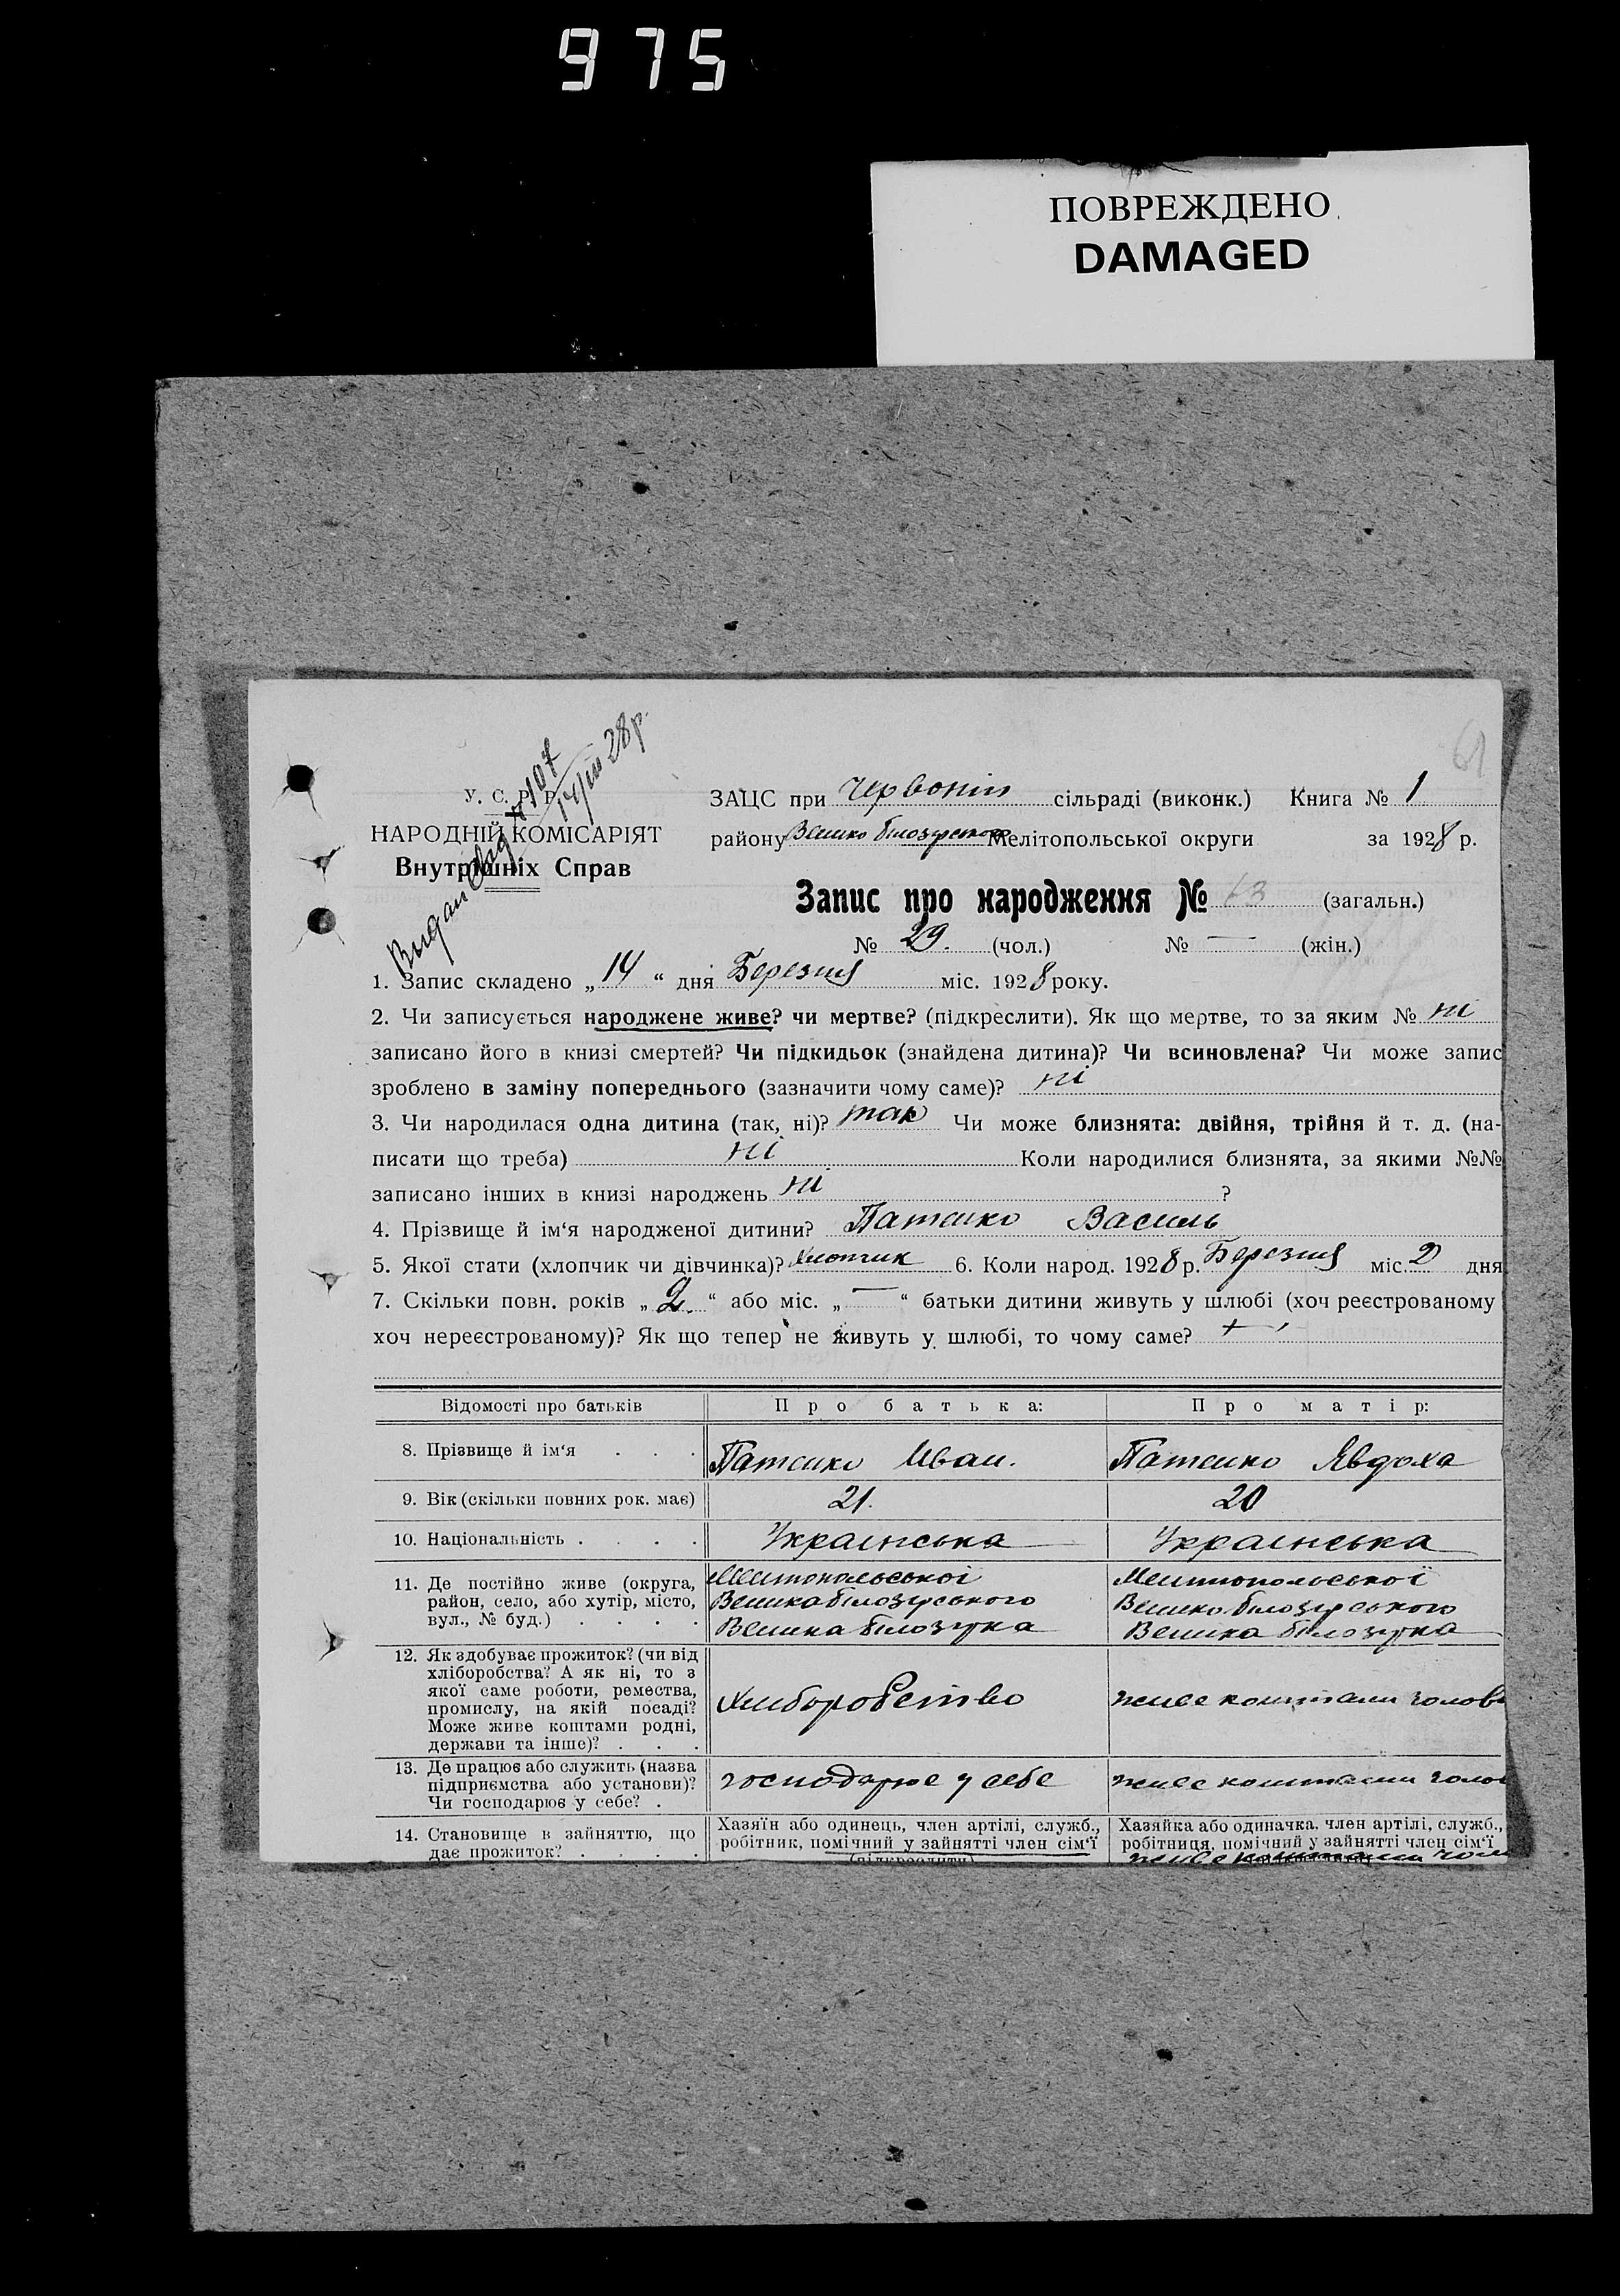 975
ПОВРЕЖДЕНО
DAMAGED
61
Видан витяг № 107
14/III 28 р.
У. С. Р. Р.
НАРОДНІЙ КОМІСАРІЯТ
Внутрішніх Справ
ЗАЦС при Червоній сільраді (виконк.) Книга № 1
району Велико білозірського Мелітопольської округи за 1928 р.
Запис про народження № 63 (загальн.)
№ 29. (чол.) № — (жін.)
1. Запис складено „14“ дня Березня міс. 1928 року.
2. Чи записується народжене живе? чи мертве? (підкреслити). Як що мертве, то за яким № ні
записано його в книзі смертей? Чи підкидьок (знайдена дитина)? Чи всиновлена? Чи може запис
зроблено в заміну попереднього (зазначити чому саме)? ні
3. Чи народилася одна дитина (так, ні)? так Чи може близнята: двійня, трійня й т. д. (на-
писати що треба) ні Коли народилися близнята, за якими №№
записано інших в книзі народжень ні ?
4. Прізвище й ім‘я народженої дитини? Патенко Василь
5. Якої стати (хлопчик чи дівчинка)? Хлопчик 6. Коли народ. 1928 р. Березня міс. 2 дня
7. Скільки повн. років „2.“ або міс. „—“ батьки дитини живуть у шлюбі (хоч реєстрованому
хоч нереєстрованому)? Як що тепер не живуть у шлюбі, то чому саме?
Відомості про батьків Про батька: Про матір:
8. Прізвище й ім‘я . . . Патенко Иван. Патенко Явдоха
9. Вік (скільки повних рок. має) 21. 20
10. Національність . . . . Українська Українська
11. Де постійно живе (округа, Мелитопольської Мелитопольської
район, село, або хутір, місто, Великобілозірського Велико білозірського
вул., № буд.) . . . . Велика білозірка Велика білозірка
12. Як здобуває прожиток? (чи від
хліборобства? А як ні, то з
якої саме роботи, ремества,
промислу, на якій посаді? Хліборобство живе коштами голов
Може живе коштами родні,
держави та інше)? . . .
13. Де працює або служить (назва
підприємства або установи)? господарює у себе живе коштами голов
Чи господарює у себе? .
14. Становище в зайняттю, що Хазяїн або одинець, член артілі, служб., Хазяйка або одиначка, член артілі, служб.,
дає прожиток? . . . . робітник, помічний у зайнятті член сім‘ї робітниця, помічний у зайнятті член сім‘ї
(підкреслити) живе коштами голов